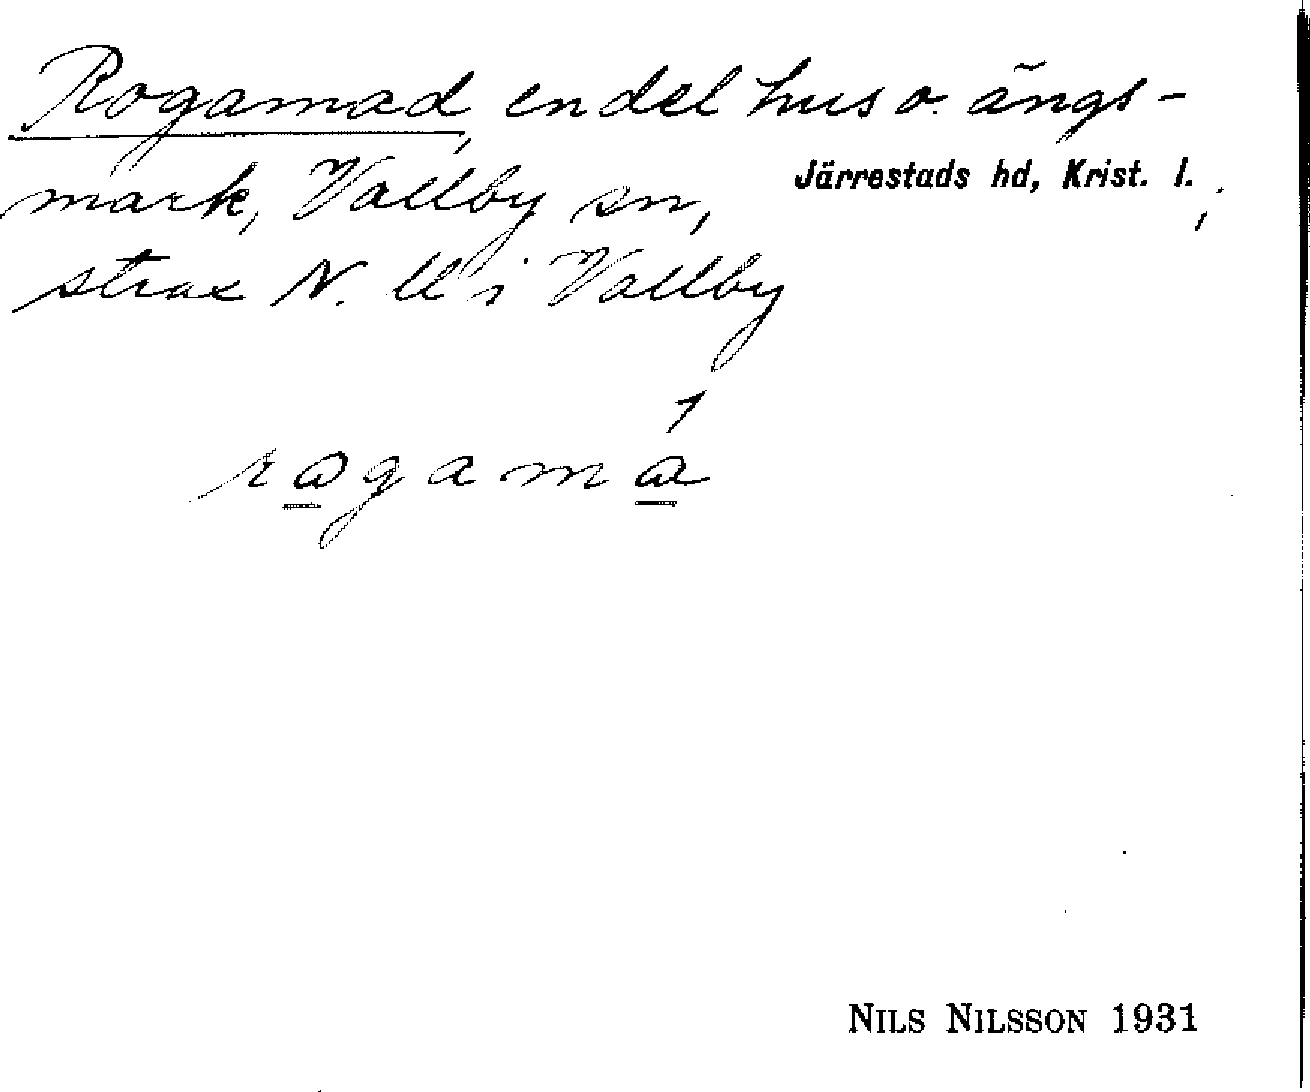 Rogamad, en del hus o. ängs-
mark, Vallby sn, Järrestads hd, Krist. l.,
strax N. U i Vallby
rogamå
NILS NILSSON 1931